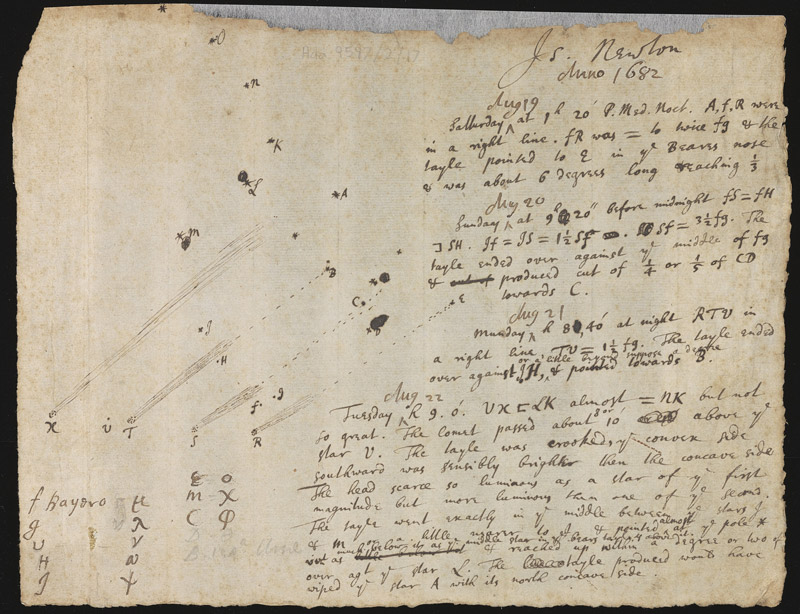 Is. Newton
Anno 1682
Aug 19
Satturday ^ at 1h 20' P. Med. Noct. A, f, R were
in a right line. fR was = to twice fg & the
tayle pointed to E in ye Beares nose
& was about 6 degrees long reaching 1/3
Aug 20
Sunday ^ at 9h 20'' before midnight fS = fH
SH. Jf = JS = 1 1/2 Sf. Sf = 3 1/2 fg. The
tayle ended over against ye middle of fg
& out of produced cut of 1/4 or 1/5 of CD
towards C.
Aug 21
Munday ^ h 8, 40' at night RTV in
a right line, TV = 1 1/2 fg. The tayle ended
or a little beyond suppose a degree
over against JH, & pointed towards B.
Aug 22
Tuesday ^ h 9. 0'. VX LK almost = NK but not
so great. The comet passed about 8 or 10' above ye
star V. The tayle was crooked, ye convex side
southward was sensibly brighter then the concave side
The head scarce so luminous as a star of ye first
magnitude but more luminous than one of ye second.
The tayle went exactly in ye middle between ye stars J
& M or a little nigher to J, & pointed almost at ye pole *
& reached up within a degree or two of
over agt ye star L. The tayle produced would have
wiped ye star A with its north concave side.
O
N
K
L
A
M
B
C
E
D
J
H
g
f
X
υ
T
S
R
f Bayero μ
g λ
υ ν
H ω
J ψ
E o
M χ
C φ